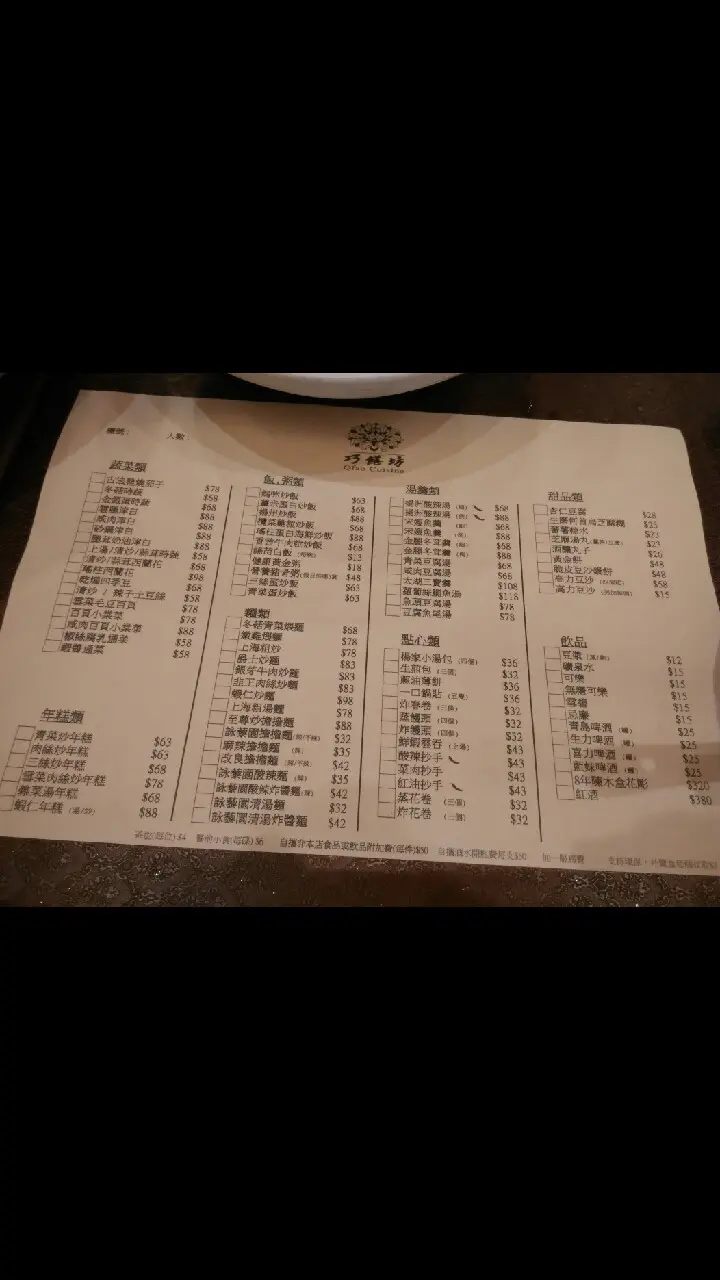 檯號： 人數：
巧膳坊
Qiao Cuisine
蔬菜類
古法醬燒茄子 $78
冬菇時蔬 $58
金銀蛋時蔬 $68
津白 $88
咸肉津白 $88
津白 $88
奶油津白 $88
上湯/清炒/蒜茸時蔬 $58
清炒/蒜茸西蘭花 $68
瑤柱西蘭花 $98
乾煸四季豆 $68
清炒 / 辣子土豆絲 $58
雪菜毛豆百頁 $78
百頁小棠菜 $78
咸肉百頁小棠菜 $88
椒絲腐乳通菜 $58
通菜 $58
年糕類
青菜炒年糕 $63
肉絲炒年糕 $63
三絲炒年糕 $68
雪菜肉絲炒年糕 $78
菜湯年糕 $68
蝦仁年糕 (湯/炒) $88
飯,粥類
炒飯 $63
蛋白炒飯 $68
揚州炒飯 $88
欖菜雞粒炒飯 $68
瑤柱蛋白海鮮炒飯 $88
牛肉鬆炒飯 $68
絲苗白飯 $13
健康黃金粥 $18
粥 $48
三絲蛋炒飯 $63
青菜蛋炒飯 $63
麵類
冬菇青菜煨麵 $68
嫩雞煨麵 $78
上海粗炒 $78
爵士炒麵 $83
銀芽牛肉炒麵 $83
韭王肉絲炒麵 $83
蝦仁炒麵 $98
上海粗湯麵 $78
至尊炒擔擔麵 $88
詠藜園擔擔麵 (辣/不辣) $32
麻辣擔擔麵 (辣) $35
改良擔擔麵 (辣/不辣) $42
詠藜園酸辣麵 (辣) $35
詠藜園酸辣炸醬麵 (辣) $42
詠藜園清湯麵 $32
詠藜園清湯炸醬麵 $42
湯羹類
楊洲酸辣湯 $68
楊洲酸辣湯 $88
宋嫂魚羹 $68
宋嫂魚羹 $88
金腿冬茸羹 $68
金腿冬茸羹 $88
青菜豆腐湯 $68
咸肉豆腐湯 $68
太湖三寶羹 $108
蘿蔔絲鯽魚湯 $118
魚頭豆腐湯 $78
豆腐魚尾湯 $78
點心類
楊家小湯包 (四個) $36
生煎包 (三個) $32
蔥油薄餅 $36
一口鍋貼 $36
炸春卷 (三條) $32
蒸饅頭 (四個) $32
炸饅頭 (四個) $32
鮮蝦雲吞 (上湯) $43
酸辣抄手 $43
菜肉抄手 $43
紅油抄手 $43
蒸花卷 (二個) $32
炸花卷 (二個) $32
甜品類
杏仁豆腐 $28
生磨何首烏芝麻糊 $23
蕃薯糖水 $23
芝麻湯丸 $23
酒釀丸子 $26
黃金餅 $48
脆皮豆沙鍋餅 $48
高力豆沙 $58
高力豆沙 $15
飲品
豆漿 (凍/熱) $12
礦泉水 $15
可樂 $15
無糖可樂 $15
雪碧 $15
忌廉 $15
青島啤酒 (罐) $25
生力啤酒 (罐) $25
喜力啤酒 (罐) $25
藍妹啤酒 (罐) $25
8年陳木盒花彫 $320
紅酒 $380
茶位(每位) $4 小食(每碟) $6 自攜非本店食品或飲品附加費(每件)$50 自攜酒水開瓶費每支$50 加一服務費